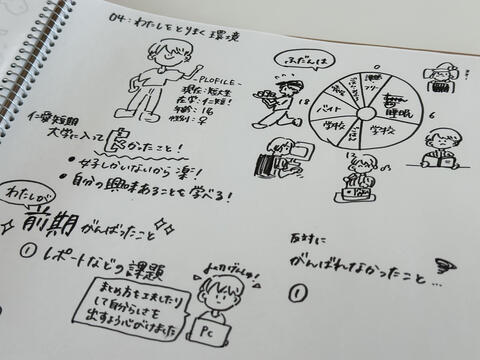 04:わたしをとりまく環境
-PLOFILE-
現在:短大生
在学:仁短!
年齢:16
性別:♀
ふだんは
0
課題
フリー
睡眠
6
学校
学校
バイト
18
12
仁愛短期
大学に入って
良かったこと!
・女子しかいないから楽!
・自分の興味あることを学べる!
わたしが
前期がんばったこと
① レポートなどの課題
まとめ方を工夫したり
して自分らしさを
出すよう心がけました
PC
反対に
がんばれなかったこと…
①